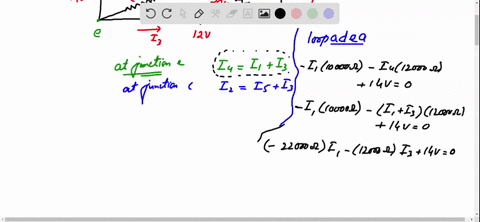 e
I₃
12V
loop adea
at junction e I₄ = I₁ + I₃
at junction c I₂ = I₅ + I₃
-I₁(10000Ω) - I₄(12000Ω)
+ 14V = 0
-I₁(10000Ω) - (I₁+I₃)(12000Ω)
+ 14V = 0
(-22000Ω)I₁ - (12000Ω)I₃ + 14V = 0